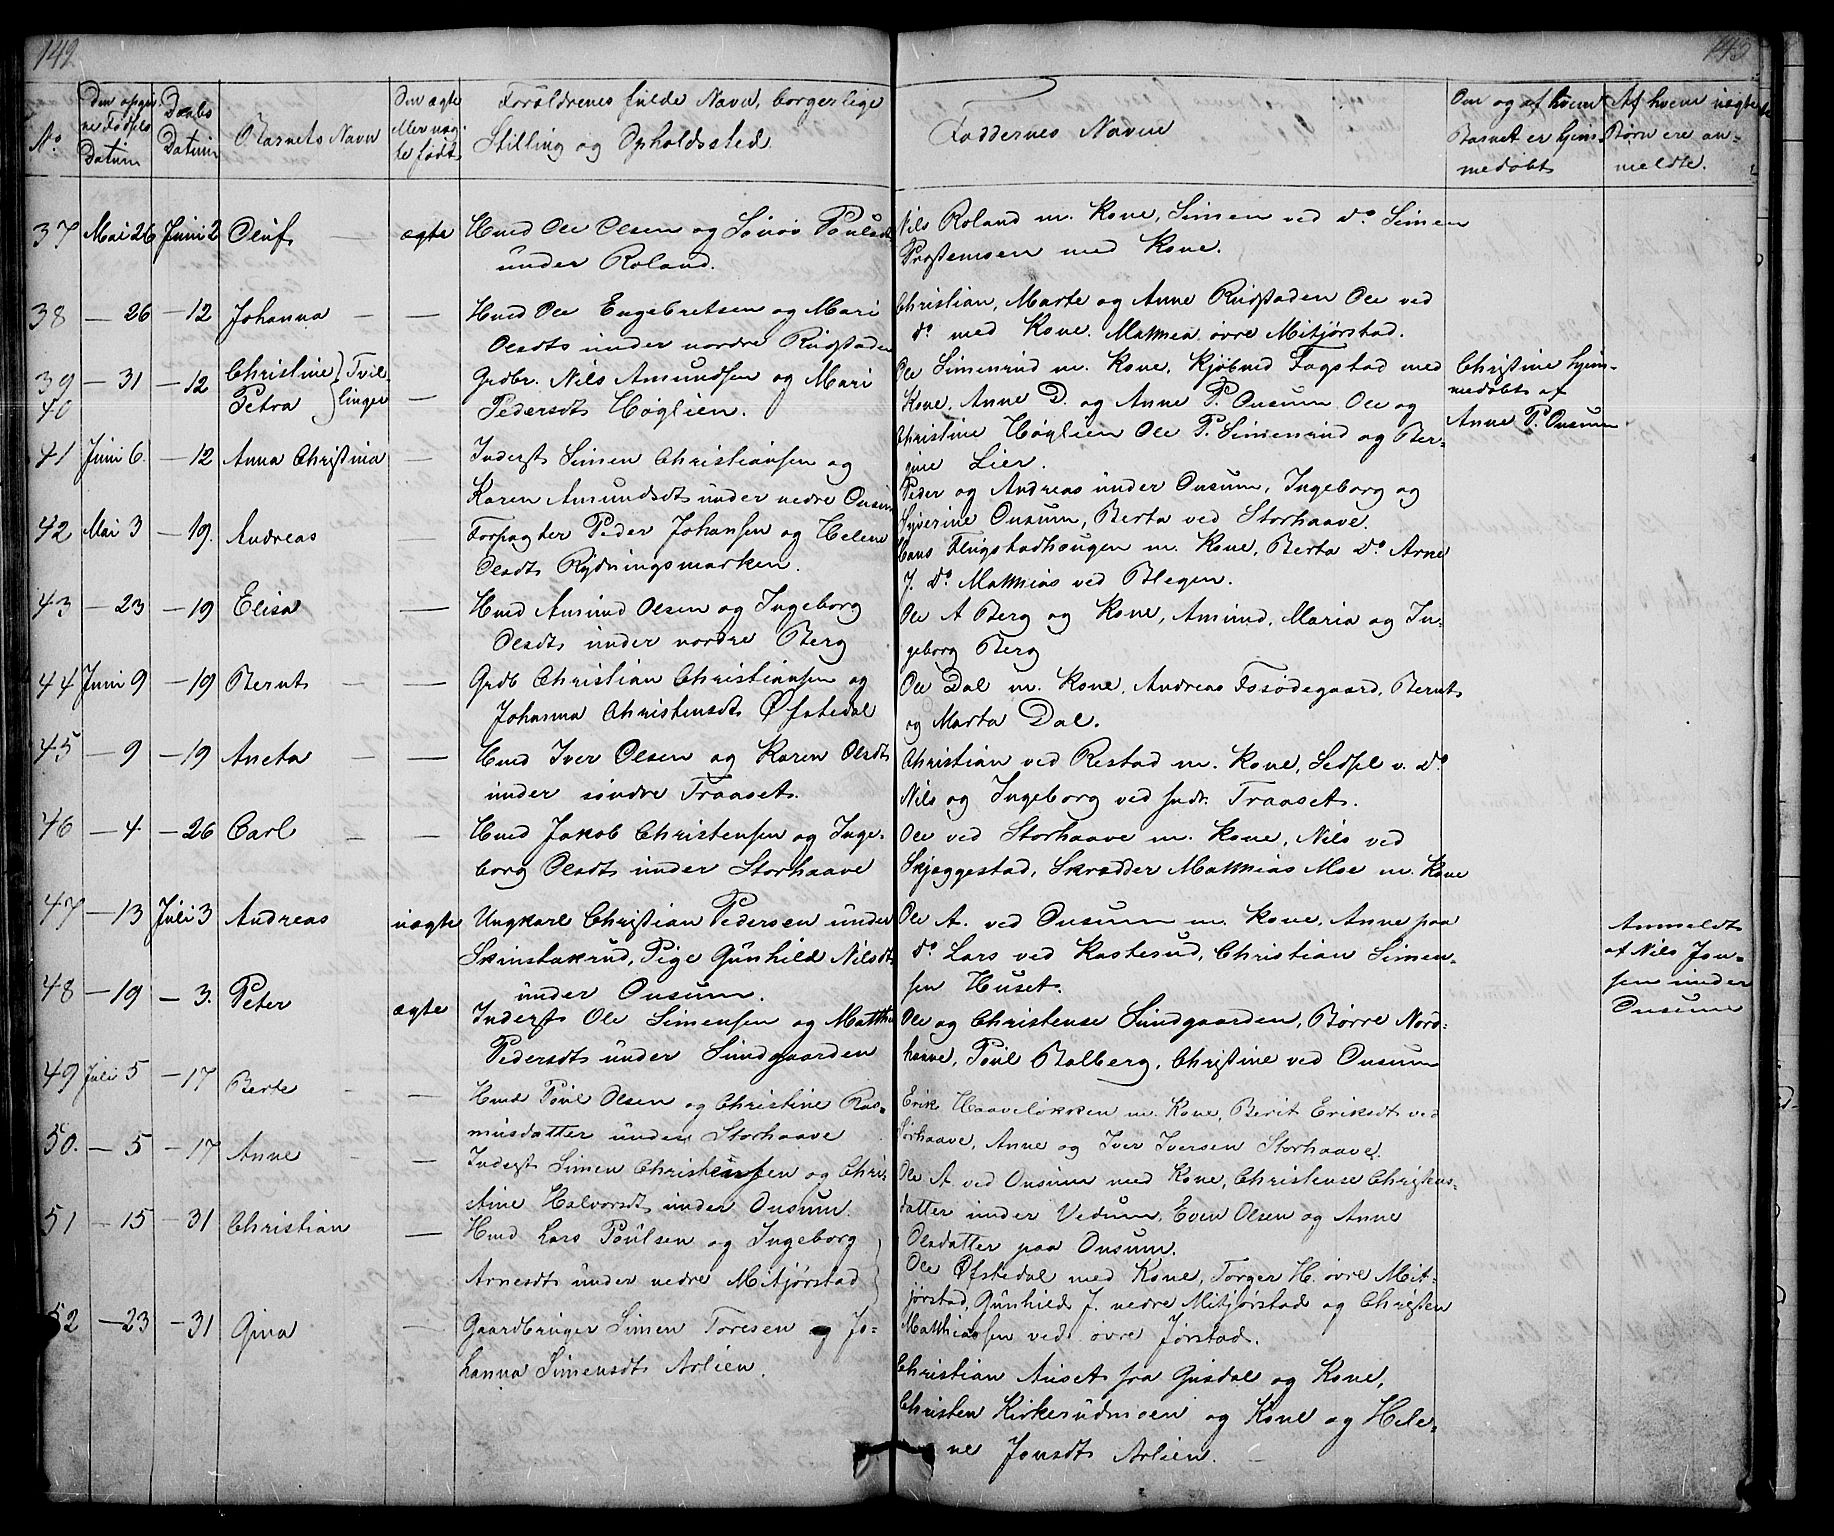 142
143
No
Den opgiv-
ne Fødsels
Datum
Daabs
Datum
Barnets Navn
Om ægte
eller uæg-
te født
Forældrenes fulde Navn, borgerlige
Stilling og Opholdssted.
Faddernes Navne
Om og af hvem
Barnet er hjem-
medøbt
Af hvem uægte
Børn ere an-
meldte.
37 Mai 26 Juni 2 Oluf — ægte Husmd Ole Olsen og Poulsdt
under Roland.
Nils Roland m. Kone, Simen ved do Simen
med Kone.
38 — 26 — 12 Johanna — — Husmd Ole Engebretsen og Mari
Olsdt under nordre Rudstaden
Christian, Marte og Anne Rudstaden Ole ved
do med Kone. Mathea øvre Mitjørstad.
39 — 31 — 12 Christine } Tvil-
40 Petra } linger —
Grdbr. Nils Amundsen og Mari
Pedersdt Høglien.
Ole Simenrud m. Kone, Kjøbmd Fagstad med
Kone, Anne D. og Anne P. Onsum Ole og
Christine Høglien Ole P. Simenrud og Ber-
gine Lier.
Christine hjem-
medøbt af
Anne P. Onsum
41 Juni 6. — 12 Anna Christina — Inderst Simen Christiansen og
Karen Amundsdt under nedre Onsum
Peder og Andreas under Onsum, Ingeborg og
Syverine Onsum, Berta ved Storhaave.
42 Mai 3 — 19. Andreas — Forpagter Peder Johansen og Helene
Olsdt Rydningsmarken.
Hans Flugstadhaugen m. Kone, Berta do Arne
J. do Mathias ved Blegen.
43 — 23 — 19 Elisa — Husmd Amund Olsen og Ingeborg
Olsdt under nordre Berg
Ole A Berg og Kone, Amund, Maria og In-
geborg Berg
44 Juni 9 — 19 Bernt — — Grdb Christian Christiansen og
Johanna Christensdt Øfstedal
Ole Dal m. Kone, Andreas Fosødegaard, Bernt
og Marta Dal.
45 — 9 — 19 Aneta — — Husmd Iver Olsen og Karen Olsdt
under søndre Traaset.
Christian ved Restad m. Kone, Sedsel v. do
Nils og Ingeborg ved sndr. Traaset.
46 — 4 — 26 Carl — — Husmd Jakob Christensen og Inge-
borg Olsdt under Storhaave
Ole ved Storhaave m. Kone, Nils ved
Skjæggestad, Skrædder Mathias Moe m. Kone
47 — 13 Juli 3 Andreas uægte Ungkarl Christian Pedersen under
Skinstakrud, Pige Gunhild Nilsdt
under Onsum.
Ole A. ved Onsum m. Kone, Anne paa
do Lars ved Kasterud, Christian Simen-
sen Huset.
Anmeldt
af Nils Jon-
sen under
Onsum
48 — 19 — 3. Peter ægte Inderst Ole Simensen og Mathia
Pedersdt under Sundgaarden
Ole og Christense Sundgaarden, Børre Nord-
haave, Poul Balberg, Christine ved Onsum
49 Juli 5 — 17 Berte — — Husmd Poul Olsen og Christine Ras-
musdatter under Storhaave
Erik Haaveløkken m. Kone, Berit Eriksdt ved
Sørhaave, Anne og Iver Iversen Storhaave.
50. — 5 — 17 Anne — — Inderst Simen Christensen og Chri-
stine Halvorsdt under Onsum.
Ole A. ved Onsum med Kone, Christense Christens-
datter under Vedum, Even Olsen og Anne
Olsdatter paa Onsum.
51 — 15 — 31 Christian — Husmd Lars Poulsen og Ingeborg
Arnesdt under nedre Mitjørstad
Ole Øfstedal med Kone, Torger H. øvre Mit-
jørstad, Gunhild J. nedre Mitjørstad og Christen
Mathiassen ved øvre Jørstad.
52 — 23 — 31 Gina — Gaardbruger Simen Toresen og Jo-
hanna Simensdt Aslien.
Christian Auset fra Gusdal og Kone,
Christen Kirkerudmoen og Kone og Hele-
ne Jonsdt Aslien.